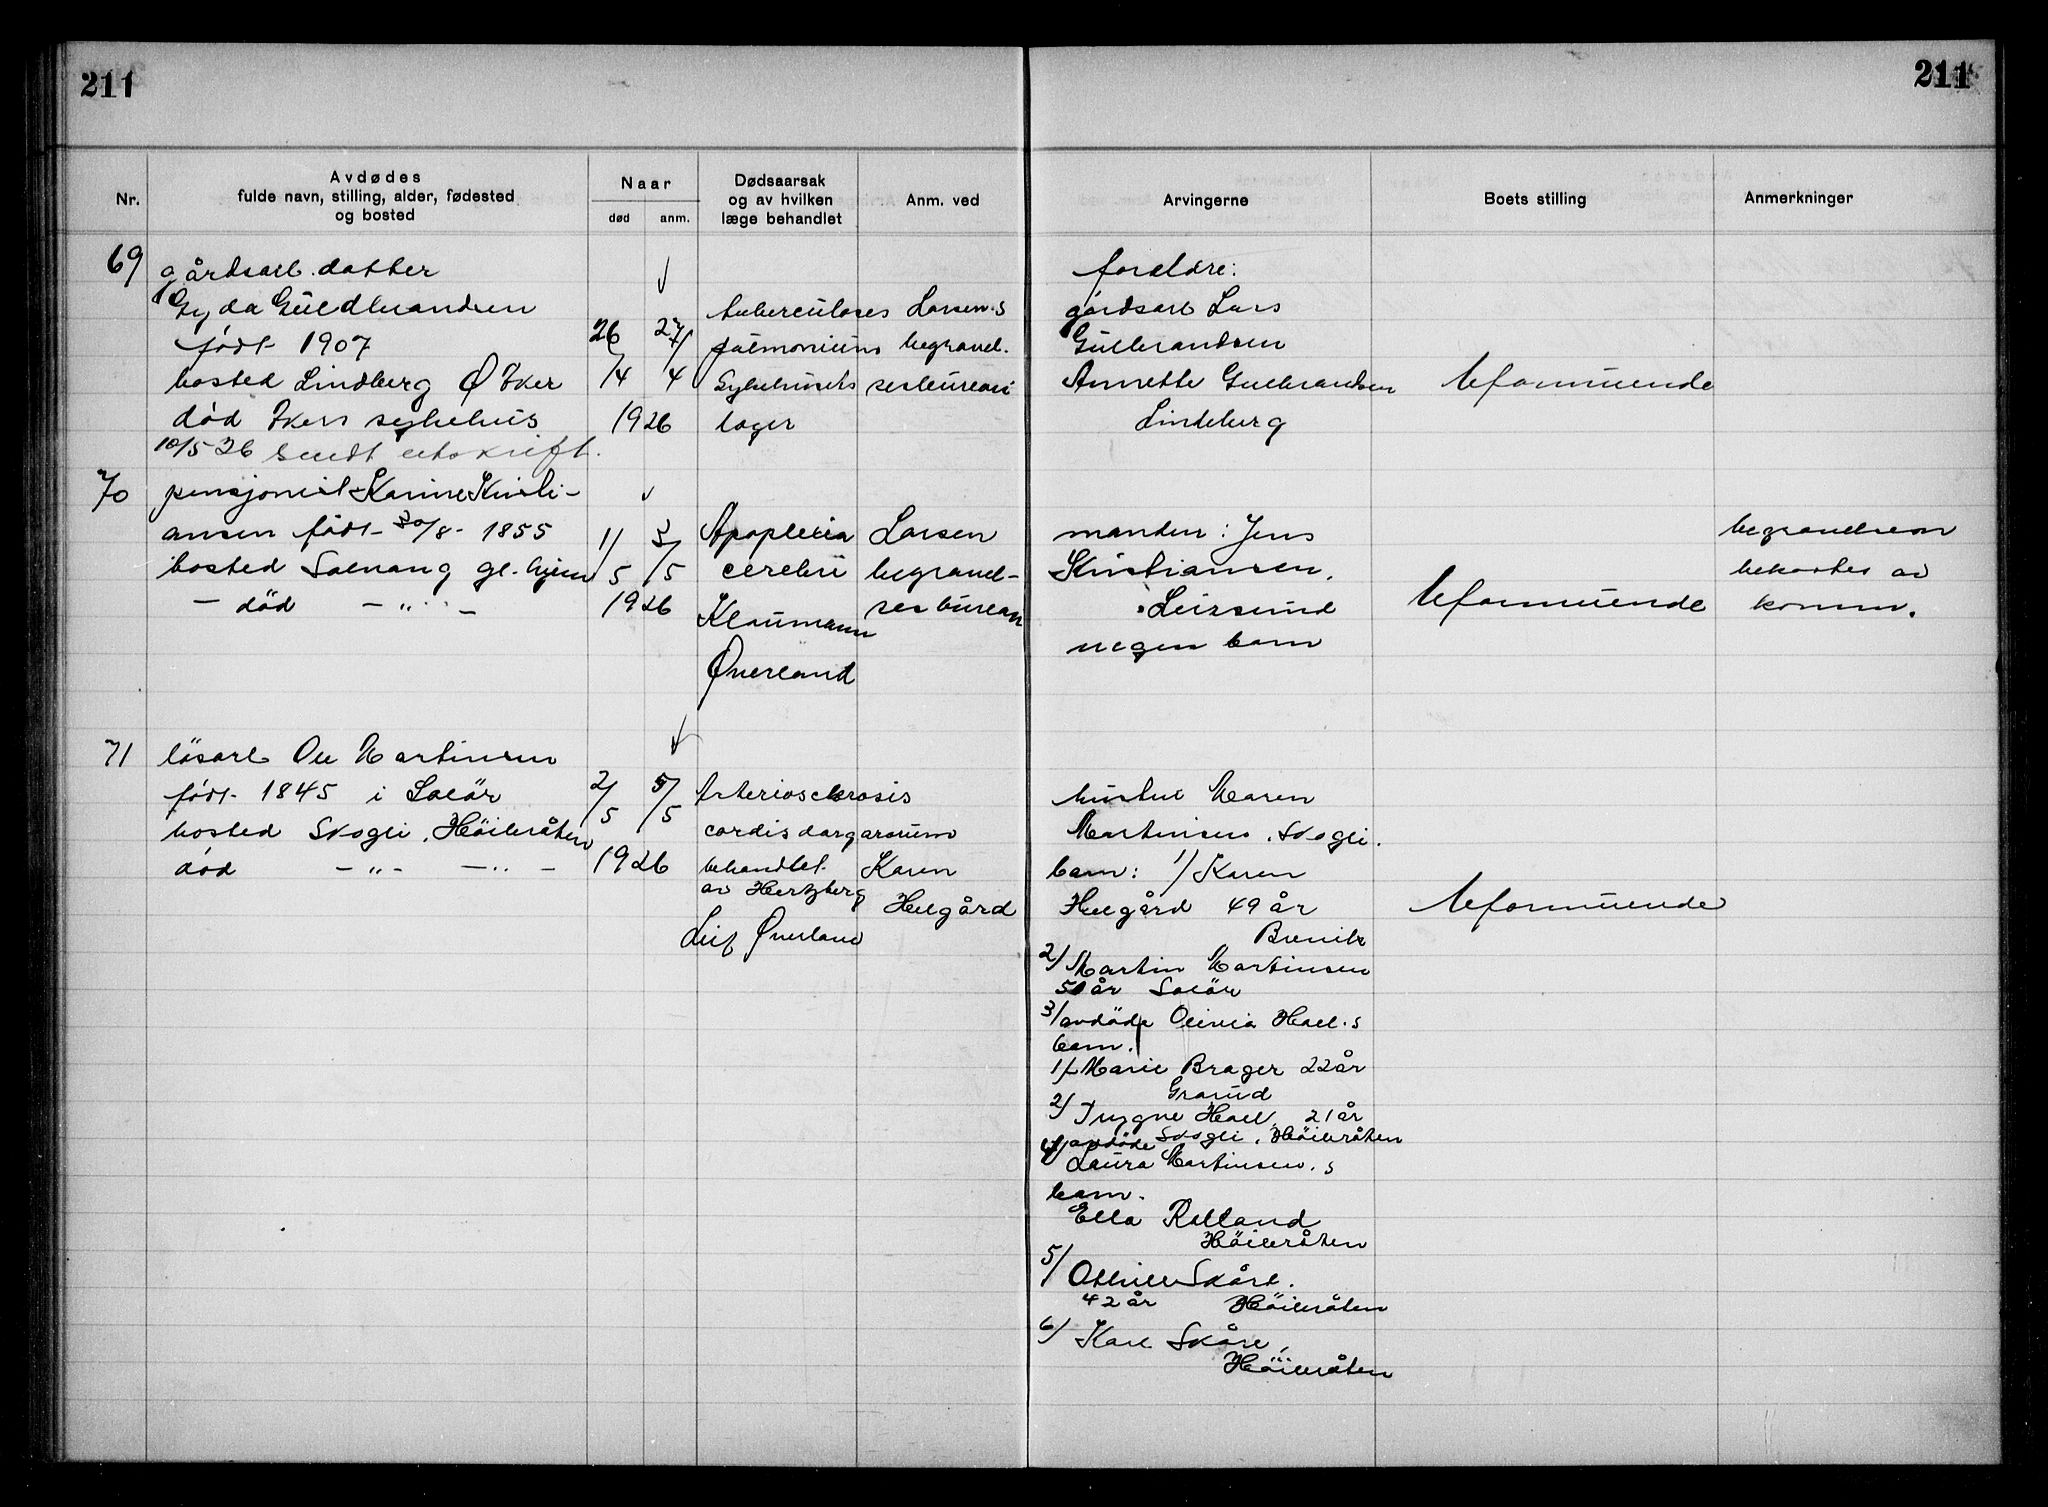 211
211
Nr.
Avdødes
fulde navn, stilling, alder, fødested
og bosted
Naar
død
anm.
Dødsaarsak
og av hvilken
læge behandlet
Anm. ved
Arvingerne
Boets stilling
Anmerkninger
69
gårdsarb. datter
Gyda Guldbrandsen
født 1907
bosted Lindberg Ø Eker
død Ekers sykehus
10/5-36 Sendt utskrift.
26/4 27/4
1926
tuberculoses
pulmonium
Sykehusets
læger
Larsen.s
begravel-
sesbureau
foreldre:
gårdsarb Lars
Gulbrandsen
Annette Gulbrandsen
Lindeberg
Uformuende
70
pensjonist Karine Kristi-
ansen født 30/8- 1855
bosted Solvang gl. hjem
- død - " -
1/5 3/5
1926
Apoplexia
cerebri
Klaumann
Øverland
Larsen
begravel-
ses bureau
manden: Jens
Kristiansen.
Leirsund
ingen barn
Uformuende
begravelsen
bekostes av
komm.
71
løsarb Ole Martinsen
født 1845 i Solör
bosted Skogli, Höibråten
død - " - - " -
2/5 5/5
1926
Arteriosclerosis
cordis
behandlet
av Hertzberg
Leif Øverland
Karen
Helgård
hustru Maren
Martinsen. Skogli.
barn: 1/ Karen
Helgård 49 år
2/ Martin Martinsen
50 år Solör
3/ avdöde Olivia Hoel.s
barn.
1/ Marie Brager 22 år
Grorud
2/ Trygve Hoel, 21 år
Skogli, Höibråten
4/ avdöde
Laura Martinsen.s
barn.
Ella Rolland
Höibråten
5/ Othilie Skåre.
42 år Höibråten
6/ Karl Skåre,
Höibråten
Uformuende